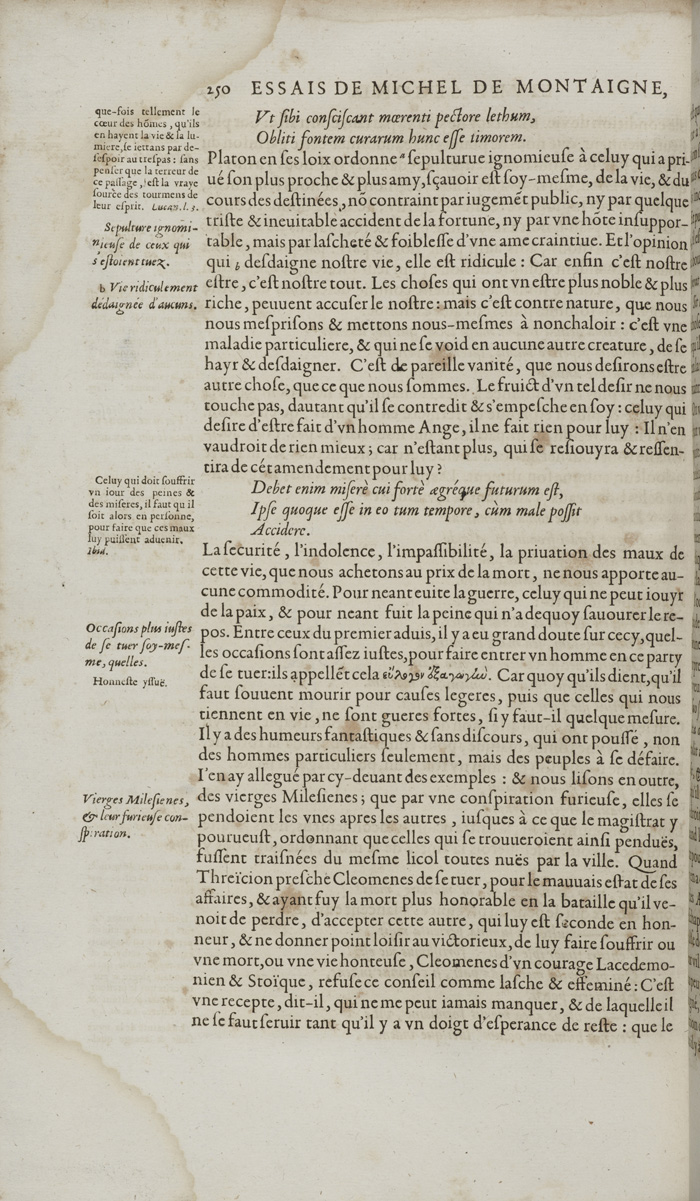 250 ESSAIS DE MICHEL DE MONTAIGNE,
que-fois tellement le
cœur des hõmes, qu'ils
en hayent la vie & la lu-
miere, se iettans par de-
sespoir au trespas: sans
penser que la terreur de
ce passage, est la vraye
source des tourmens de
leur esprit. Lucan. l. 3.
Sepulture ignomi-
nieuse de ceux qui
s'estoient tuez.
b Vie ridiculement
dédaignée d'aucuns.
Celuy qui doit souffrir
vn iour des peines &
des miseres, il faut qu'il
soit alors en personne,
pour faire que ces maux
luy puissent aduenir.
Ibid.
Occasions plus iustes
de se tuer soy-mes-
me, quelles.
Honneste yssuë.
Vierges Milesienes,
& leur furieuse con-
spiration.
Vt sibi consciscant mœrenti pectore lethum,
Obliti fontem curarum hunc esse timorem.
Platon en ses loix ordonne a sepulturue ignomieuse à celuy qui a pri-
ué son plus proche & plus amy, sçauoir est soy-mesme, de la vie, & du
cours des destinées, nõ contraint par iugemẽt public, ny par quelque
triste & ineuitable accident de la fortune, ny par vne hõte insuppor-
table, mais par lascheté & foiblesse d'vne ame craintiue. Et l'opinion
qui b desdaigne nostre vie, elle est ridicule : Car enfin c'est nostre
estre, c'est nostre tout. Les choses qui ont vn estre plus noble & plus
riche, peuuent accuser le nostre: mais c'est contre nature, que nous
nous mesprisons & mettons nous-mesmes à nonchaloir : c'est vne
maladie particuliere, & qui ne se void en aucune autre creature, de se
hayr & desdaigner. C'est de pareille vanité, que nous desirons estre
autre chose, que ce que nous sommes. Le fruict d'vn tel desir ne nous
touche pas, dautant qu'il se contredit & s'empesche en soy : celuy qui
desire d'estre fait d'vn homme Ange, il ne fait rien pour luy : Il n'en
vaudroit de rien mieux ; car n'estant plus, qui se resiouyra & ressen-
tira de cét amendement pour luy ?
Debet enim miserè cui fortè ægréque futurum est,
Ipse quoque esse in eo tum tempore, cùm male possit
Accidere.
La securité, l'indolence, l'impassibilité, la priuation des maux de
cette vie, que nous achetons au prix de la mort, ne nous apporte au-
cune commodité. Pour neant euite la guerre, celuy qui ne peut iouyr
de la paix, & pour neant fuit la peine qui n'a dequoy sauourer le re-
pos. Entre ceux du premier aduis, il y a eu grand doute sur cecy, quel-
les occasions sont assez iustes, pour faire entrer vn homme en ce party
de se tuer: ils appellẽt cela εὔλογον ἐξαγωγὴν. Car quoy qu'ils dient, qu'il
faut souuent mourir pour causes legeres, puis que celles qui nous
tiennent en vie, ne sont gueres fortes, si y faut-il quelque mesure.
Il y a des humeurs fantastiques & sans discours, qui ont poussé, non
des hommes particuliers seulement, mais des peuples à se défaire.
I'en ay allegué par cy-deuant des exemples : & nous lisons en outre,
des vierges Milesienes; que par vne conspiration furieuse, elles se
pendoient les vnes apres les autres, iusques à ce que le magistrat y
pourueust, ordonnant que celles qui se trouueroient ainsi penduës,
fussent traisnées du mesme licol toutes nuës par la ville. Quand
Threïcion presche Cleomenes de se tuer, pour le mauuais estat de ses
affaires, & ayant fuy la mort plus honorable en la bataille qu'il ve-
noit de perdre, d'accepter cette autre, qui luy est seconde en hon-
neur, & ne donner point loisir au victorieux, de luy faire souffrir ou
vne mort, ou vne vie honteuse, Cleomenes d'vn courage Lacedemo-
nien & Stoïque, refuse ce conseil comme lasche & effeminé: C'est
vne recepte, dit-il, qui ne me peut iamais manquer, & de laquelle il
ne se faut seruir tant qu'il y a vn doigt d'esperance de reste : que le